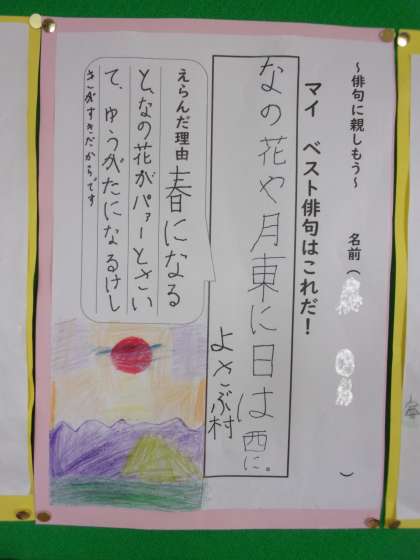 ~俳句に親しもう~
名前( )
マイ ベスト俳句はこれだ!
なの花や月東に日は西に。
よさぶ村
えらんだ理由
春になる
と、なの花がパァーとさい
て、ゆうがたになるけし
きがすきだからです